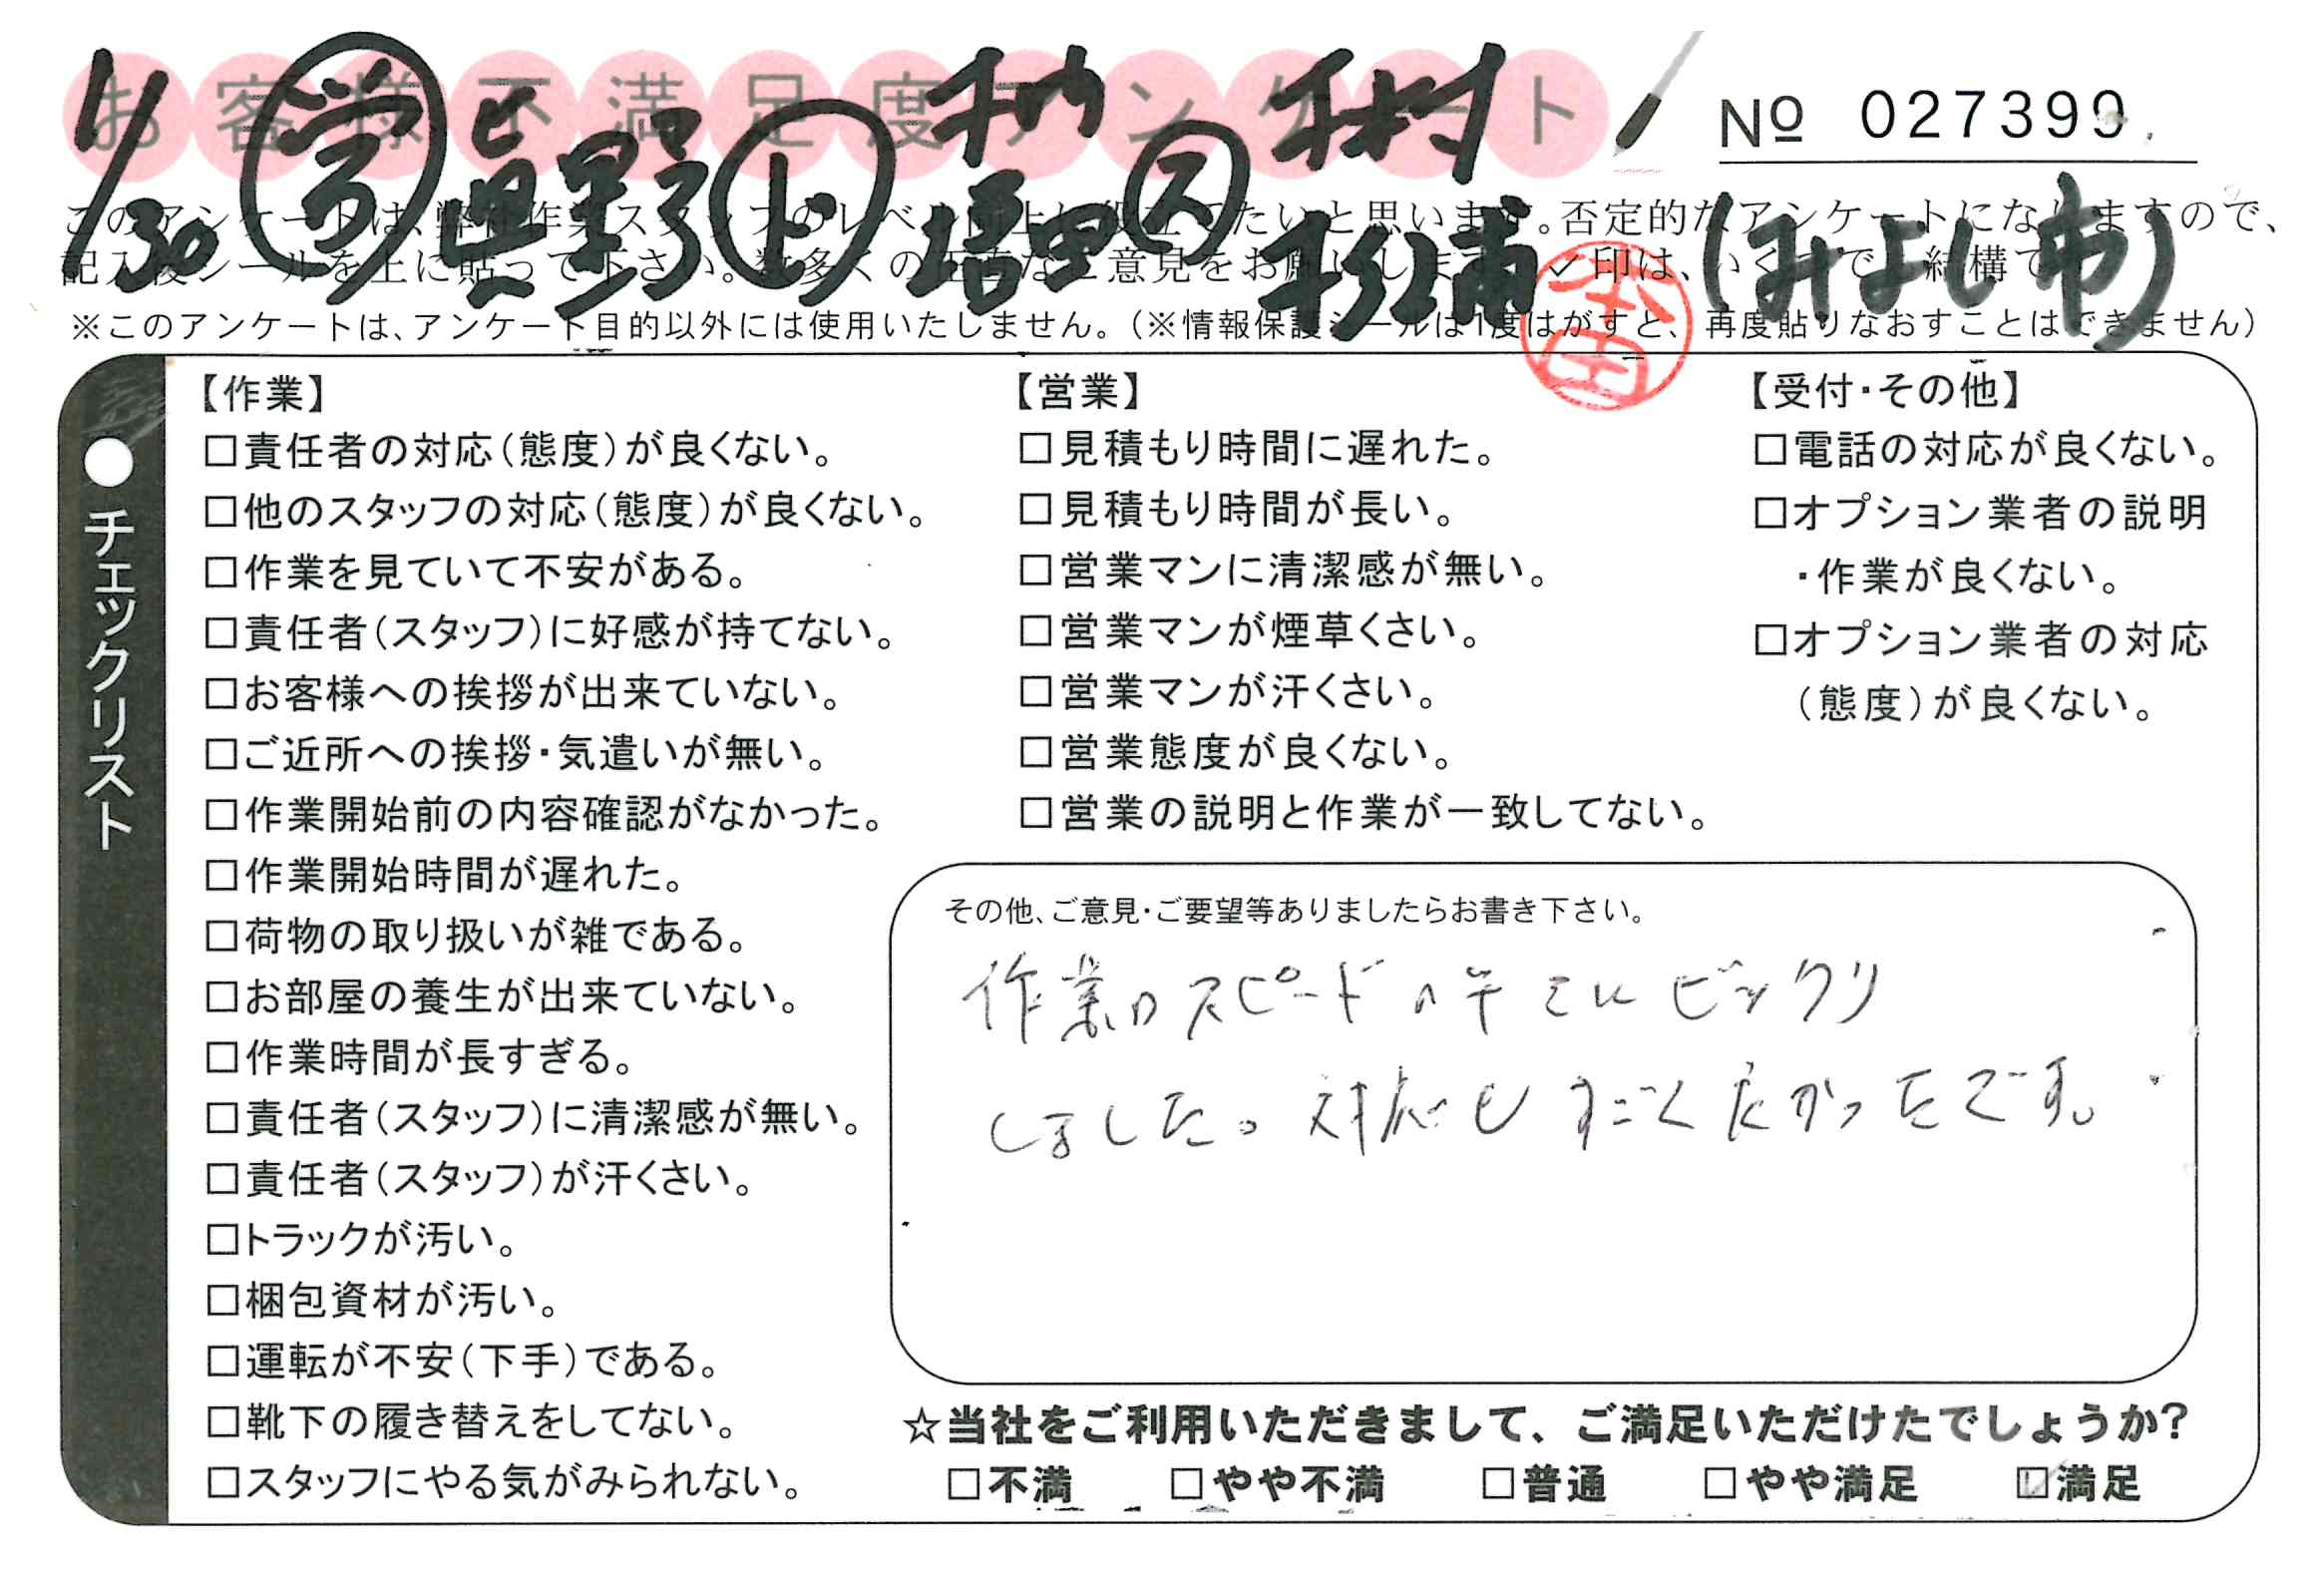 お客様不満足度アンケート
No 027399
1/30 労 星野 ド 増田 ス 杉浦 (みよし市)
このアンケートは、弊社作業スタッフのレベル向上に役立てたいと思います。否定的なアンケートになりますので、
記入後シールを上に貼って下さい。数多くのご意見をお願いします。✓印は、いくつでも結構です
※このアンケートは、アンケート目的以外には使用いたしません。(※情報保護シールは1度はがすと、再度貼りなおすことはできません)
●チェックリスト
【作業】
□責任者の対応(態度)が良くない。
□他のスタッフの対応(態度)が良くない。
□作業を見ていて不安がある。
□責任者(スタッフ)に好感が持てない。
□お客様への挨拶が出来ていない。
□ご近所への挨拶・気遣いが無い。
□作業開始前の内容確認がなかった。
□作業開始時間が遅れた。
□荷物の取り扱いが雑である。
□お部屋の養生が出来ていない。
□作業時間が長すぎる。
□責任者(スタッフ)に清潔感が無い。
□責任者(スタッフ)が汗くさい。
□トラックが汚い。
□梱包資材が汚い。
□運転が不安(下手)である。
□靴下の履き替えをしてない。
□スタッフにやる気がみられない。
【営業】
□見積もり時間に遅れた。
□見積もり時間が長い。
□営業マンに清潔感が無い。
□営業マンが煙草くさい。
□営業マンが汗くさい。
□営業態度が良くない。
□営業の説明と作業が一致してない。
【受付・その他】
□電話の対応が良くない。
□オプション業者の説明
・作業が良くない。
□オプション業者の対応
(態度)が良くない。
その他、ご意見・ご要望等ありましたらお書き下さい。
作業のスピードの早さにビックリ
しました。対応もすごく良かったです。
☆当社をご利用いただきまして、ご満足いただけたでしょうか?
□不満 □やや不満 □普通 □やや満足 ☑満足